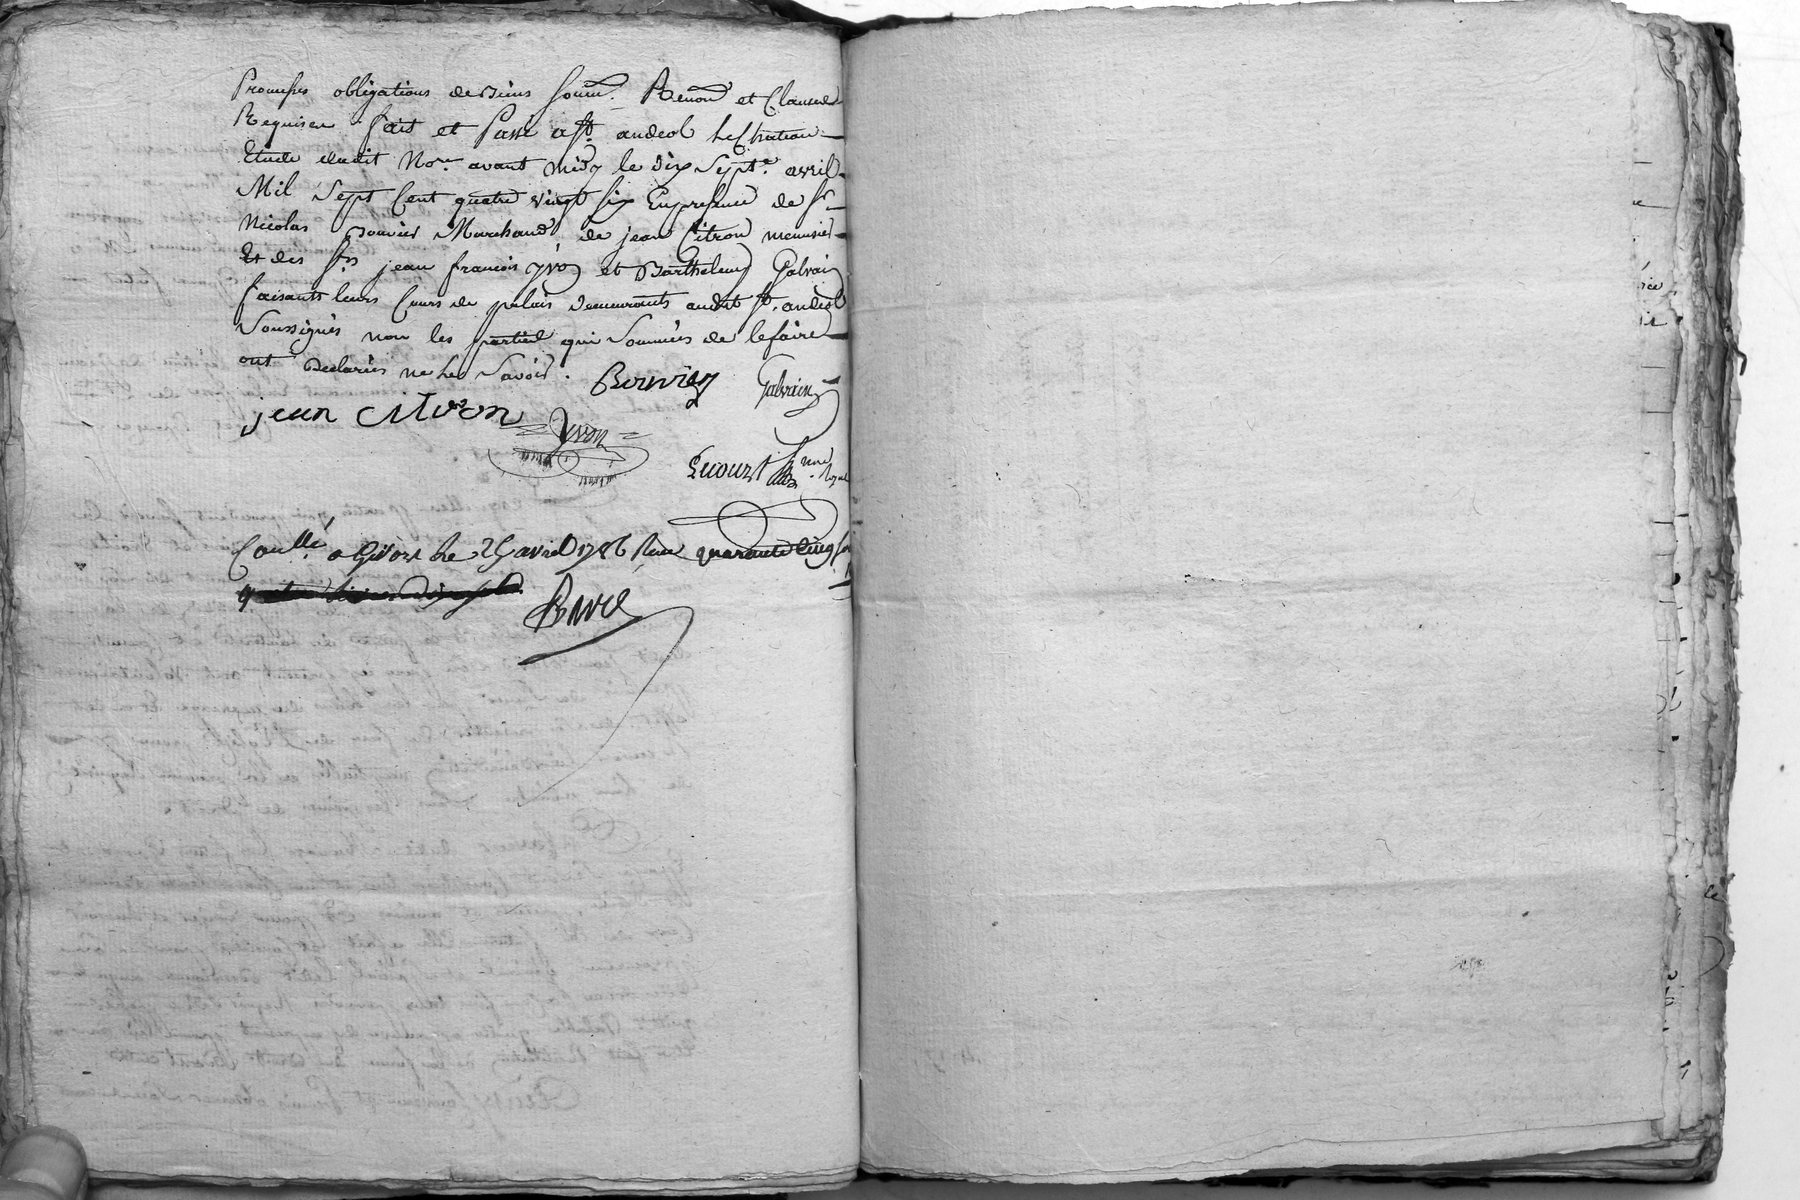 Promesses obligations de Biens soum. Renon et Clauses
Requises fait et Passé a St. andeol le Chateau
Etude dudit No.re avant midy le dix Sept.e avril
Mil Sept Cent quatre vingt six En presence de Sr
Nicolas Bouvier Marchand de jean Citron menuisier
Et des Srs jean francois yvon et Barthelemy Galvain
faisants leurs Cours de palais demeurants audit St. andéol
Soussignés non les parties qui Sommées de le faire
ont Declarées ne le Savoir.
Galvain
jean citron
yvon
Lecourt No.re Royal
Con.llé a Givors le 25 avril 1786 Reçu quarante Cinq